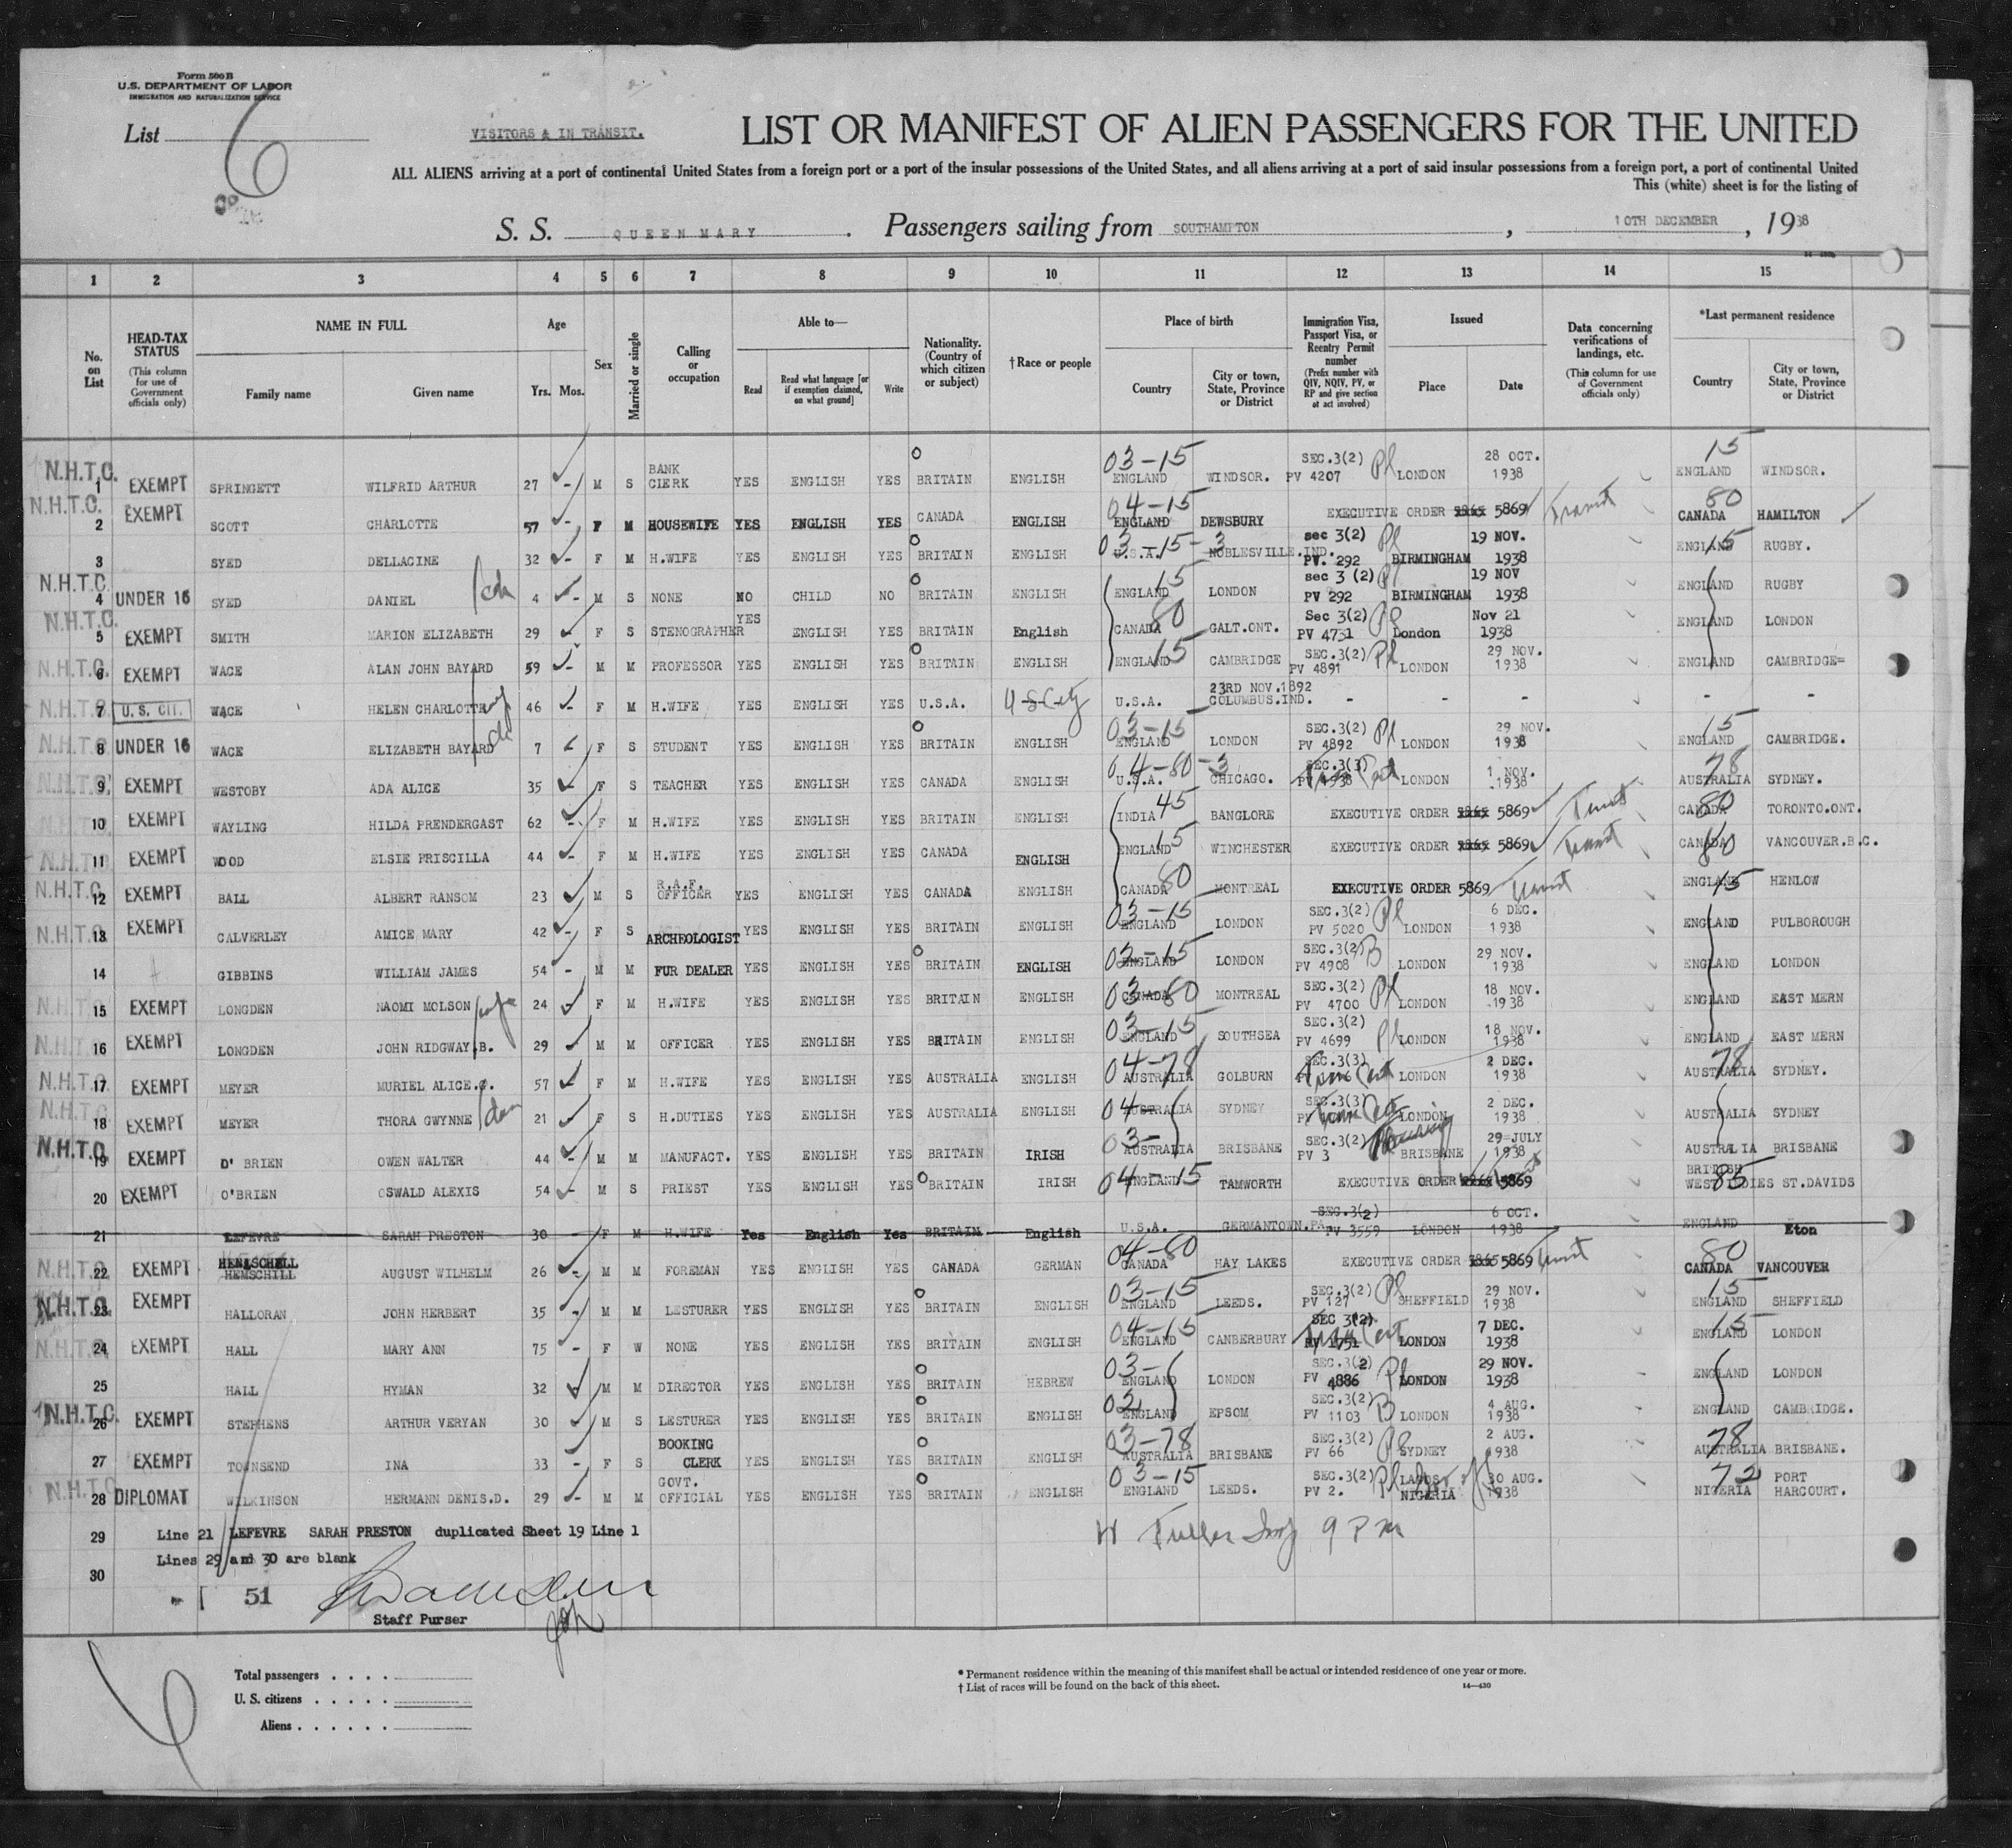 Form 500 B
U.S. DEPARTMENT OF LABOR
IMMIGRATION AND NATURALIZATION SERVICE
List 6
VISITORS & IN TRANSIT.
LIST OR MANIFEST OF ALIEN PASSENGERS FOR THE UNITED
ALL ALIENS arriving at a port of continental United States from a foreign port or a port of the insular possessions of the United States, and all aliens arriving at a port of said insular possessions from a foreign port, a port of continental United
This (white) sheet is for the listing of
S. S. QUEEN MARY. Passengers sailing from SOUTHAMPTON, 10TH DECEMBER, 1938
1 2 3 4 5 6 7 8 9 10 11 12 13 14 15
No. on List
HEAD-TAX STATUS (This column for use of Government officials only)
NAME IN FULL Family name Given name
Age Yrs. Mos.
Sex
Married or single
Calling or occupation
Able to— Read Read what language [or if exemption claimed, on what ground] Write
Nationality. (Country of which citizen or subject)
†Race or people
Place of birth Country City or town, State, Province or District
Immigration Visa, Passport Visa, or Reentry Permit number (Prefix number with QIV, NQIV, PV, or RP and give section of act involved)
Issued Place Date
Data concerning verifications of landings, etc. (This column for use of Government officials only)
*Last permanent residence Country City or town, State, Province or District
N.H.T.C. 1 EXEMPT SPRINGETT WILFRID ARTHUR 27 - M S BANK CLERK YES ENGLISH YES BRITAIN ENGLISH 03-15 ENGLAND WINDSOR. SEC.3(2) PV 4207 Pl LONDON 28 OCT. 1938 15 ENGLAND WINDSOR.
N.H.T.C. 2 EXEMPT SCOTT CHARLOTTE 57 - F M HOUSEWIFE YES ENGLISH YES CANADA ENGLISH 04-15 ENGLAND DEWSBURY EXECUTIVE ORDER 5869 Transit 80 CANADA HAMILTON
3 SYED DELLACINE 32 - F M H.WIFE YES ENGLISH YES BRITAIN ENGLISH 03-15-3 U.S.A. NOBLESVILLE.IND. sec 3(2) PV. 292 Pl BIRMINGHAM 19 NOV. 1938 15 ENGLAND RUGBY.
N.H.T.C. 4 UNDER 16 SYED DANIEL ch 4 - M S NONE NO CHILD NO BRITAIN ENGLISH 15 ENGLAND LONDON sec 3 (2) PV 292 Pl BIRMINGHAM 19 NOV 1938 ENGLAND RUGBY
N.H.T.C. 5 EXEMPT SMITH MARION ELIZABETH 29 - F S STENOGRAPHER YES ENGLISH YES BRITAIN English 80 CANADA GALT.ONT. Sec 3(2) PV 4731 Pl London Nov 21 1938 ENGLAND LONDON
N.H.T.C. 6 EXEMPT WACE ALAN JOHN BAYARD 59 - M M PROFESSOR YES ENGLISH YES BRITAIN ENGLISH 15 ENGLAND CAMBRIDGE SEC.3(2) PV 4891 Pl LONDON 29 NOV. 1938 ENGLAND CAMBRIDGE=
N.H.T.C. 7 U.S. CIT. WACE HELEN CHARLOTTE wf 46 - F M H.WIFE YES ENGLISH YES U.S.A. U.S. City U.S.A. 23RD NOV.1892 COLUMBUS.IND. - - - - -
N.H.T.C. 8 UNDER 16 WACE ELIZABETH BAYARD ch 7 F S STUDENT YES ENGLISH YES BRITAIN ENGLISH 03-15 ENGLAND LONDON SEC.3(2) PV 4892 Pl LONDON 29 NOV. 1938 15 ENGLAND CAMBRIDGE.
N.H.T.C. 9 EXEMPT WESTOBY ADA ALICE 35 F S TEACHER YES ENGLISH YES CANADA ENGLISH 04-80-3 U.S.A. CHICAGO. SEC.3(3) LONDON 1 NOV. 1938 78 AUSTRALIA SYDNEY.
10 EXEMPT WAYLING HILDA PRENDERGAST 62 - F M H.WIFE YES ENGLISH YES BRITAIN ENGLISH 45 INDIA BANGLORE EXECUTIVE ORDER 5869 Transit 80 CANADA TORONTO.ONT.
N.H.T.C. 11 EXEMPT WOOD ELSIE PRISCILLA 44 - F M H.WIFE YES ENGLISH YES CANADA ENGLISH 15 ENGLAND WINCHESTER EXECUTIVE ORDER 5869 Transit 80 CANADA VANCOUVER.B.C.
N.H.T.C. 12 EXEMPT BALL ALBERT RANSOM 23 M S R.A.F. OFFICER YES ENGLISH YES CANADA ENGLISH 80 CANADA MONTREAL EXECUTIVE ORDER 5869 Transit 15 ENGLAND HENLOW
N.H.T.C. 13 EXEMPT CALVERLEY AMICE MARY 42 - F S ARCHEOLOGIST YES ENGLISH YES BRITAIN ENGLISH 03-15 ENGLAND LONDON SEC.3(2) PV 5020 Pl LONDON 6 DEC. 1938 ENGLAND PULBOROUGH
14 GIBBINS WILLIAM JAMES 54 - M M FUR DEALER YES ENGLISH YES BRITAIN ENGLISH 02-15 ENGLAND LONDON SEC.3(2) PV 4908 B LONDON 29 NOV. 1938 ENGLAND LONDON
N.H.T.C. 15 EXEMPT LONGDEN NAOMI MOLSON wife 24 F M H.WIFE YES ENGLISH YES BRITAIN ENGLISH 03-80 CANADA MONTREAL SEC.3(2) PV 4700 Pl LONDON 18 NOV. 1938 ENGLAND EAST MERN
N.H.T.C. 16 EXEMPT LONGDEN JOHN RIDGWAY.B. 29 M M OFFICER YES ENGLISH YES BRITAIN ENGLISH 03-15 ENGLAND SOUTHSEA SEC.3(2) PV 4699 Pl LONDON 18 NOV. 1938 ENGLAND EAST MERN
N.H.T.C. 17 EXEMPT MEYER MURIEL ALICE. 57 F M H.WIFE YES ENGLISH YES AUSTRALIA ENGLISH 04-78 AUSTRALIA GOLBURN SEC.3(3) LONDON 2 DEC. 1938 78 AUSTRALIA SYDNEY.
N.H.T.C. 18 EXEMPT MEYER THORA GWYNNE dau 21 F S H.DUTIES YES ENGLISH YES AUSTRALIA ENGLISH 04- AUSTRALIA SYDNEY SEC.3(3) LONDON 2 DEC. 1938 AUSTRALIA SYDNEY
N.H.T.C. 19 EXEMPT O' BRIEN OWEN WALTER 44 - M M MANUFACT. YES ENGLISH YES BRITAIN IRISH 03- AUSTRALIA BRISBANE SEC.3(2) PV 3 BRISBANE 29 JULY 1938 AUSTRALIA BRISBANE
20 EXEMPT O'BRIEN OSWALD ALEXIS 54 - M S PRIEST YES ENGLISH YES BRITAIN IRISH 04-15 ENGLAND TAMWORTH EXECUTIVE ORDER 5869 85 BRITISH WEST INDIES ST.DAVIDS
21 LEFEVRE SARAH PRESTON 30 - F M H.WIFE Yes English Yes BRITAIN English U.S.A. GERMANTOWN.PA SEC.3(2) PV 3559 LONDON 6 OCT. 1938 ENGLAND Eton
N.H.T.C. 22 EXEMPT HENSCHELL HEMSCHILL AUGUST WILHELM 26 - M M FOREMAN YES ENGLISH YES CANADA GERMAN 04-80 CANADA HAY LAKES EXECUTIVE ORDER 5869 Transit 80 CANADA VANCOUVER
N.H.T.C. 23 EXEMPT HALLORAN JOHN HERBERT 35 - M M LESTURER YES ENGLISH YES BRITAIN ENGLISH 03-15 ENGLAND LEEDS. SEC.3(2) PV 127 Pl SHEFFIELD 29 NOV. 1938 15 ENGLAND SHEFFIELD
N.H.T.C. 24 EXEMPT HALL MARY ANN 75 - F W NONE YES ENGLISH YES BRITAIN ENGLISH 04-15 ENGLAND CANBERBURY SEC 3(2) PV 1751 LONDON 7 DEC. 1938 15 ENGLAND LONDON
25 HALL HYMAN 32 M M DIRECTOR YES ENGLISH YES BRITAIN HEBREW 03- ENGLAND LONDON SEC.3(2) PV 4886 Pl LONDON 29 NOV. 1938 ENGLAND LONDON
N.H.T.C. 26 EXEMPT STEPHENS ARTHUR VERYAN 30 - M S LESTURER YES ENGLISH YES BRITAIN ENGLISH 02 ENGLAND EPSOM SEC.3(2) PV 1103 B LONDON 4 AUG. 1938 ENGLAND CAMBRIDGE.
27 EXEMPT TOWNSEND INA 33 - F S BOOKING CLERK YES ENGLISH YES BRITAIN ENGLISH 03-78 AUSTRALIA BRISBANE SEC.3(2) PV 66 Pl SYDNEY 2 AUG. 1938 78 AUSTRALIA BRISBANE.
N.H.T.C. 28 DIPLOMAT WILKINSON HERMANN DENIS.D. 29 - M M GOVT. OFFICIAL YES ENGLISH YES BRITAIN ENGLISH 03-15 ENGLAND LEEDS. SEC.3(2) PV 2. Pl LAGOS NIGERIA 30 AUG. 1938 72 NIGERIA PORT HARCOURT.
29 Line 21 LEFEVRE SARAH PRESTON duplicated Sheet 19 Line 1
Lines 29 and 30 are blank
30
W Fuller Insp 9 PM
51
Staff Purser
6
Total passengers
U. S. citizens
Aliens
* Permanent residence within the meaning of this manifest shall be actual or intended residence of one year or more.
† List of races will be found on the back of this sheet.
14—430